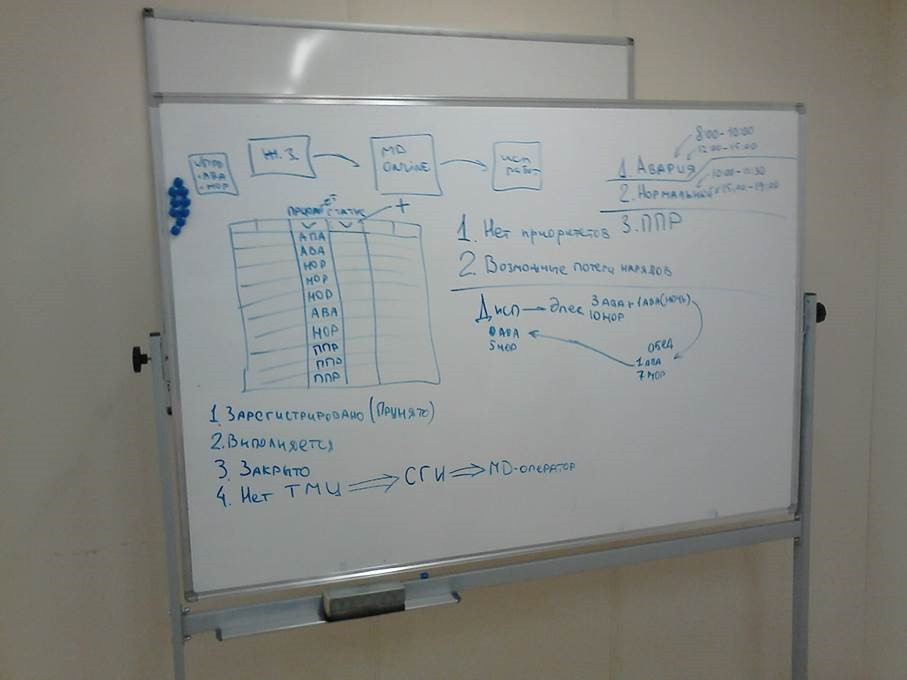 Ж.З.
MD
ONLINE
исп
работ
-АВА
-НОР
8:00-10:00
12:00-15:00
1. АВАРИЯ
10:00-11:30
2. НОРМАЛЬНОЕ 15:00-19:00
3. ППР
ПРИОРИТЕТ СТАТУС +
АПА
АВА
НОР
НОР
НОР
АВА
НОР
ППР
ППР
ППР
1. Нет приоритетов
2. Возможные потери нарядов
Дисп → Элек 3 АВА + 1 АВА (ночь)
10 НОР
0 АВА
5 НОР
ОБЕД
1 АВА
7 НОР
1. ЗАРЕГИСТРИРОВАНО (ПРИНЯТО)
2. Выполняется
3. ЗАКРЫТО
4. Нет ТМЦ ⇒ СГИ ⇒ MD-оператор